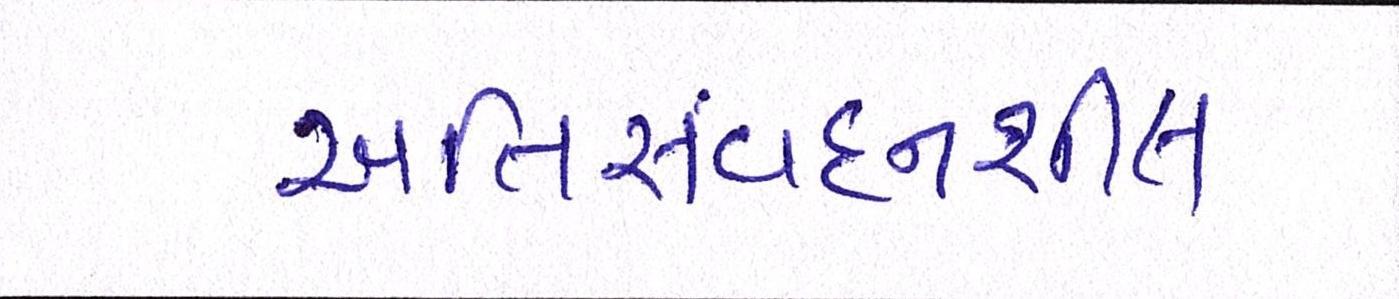 અતિસંવદનશીલ